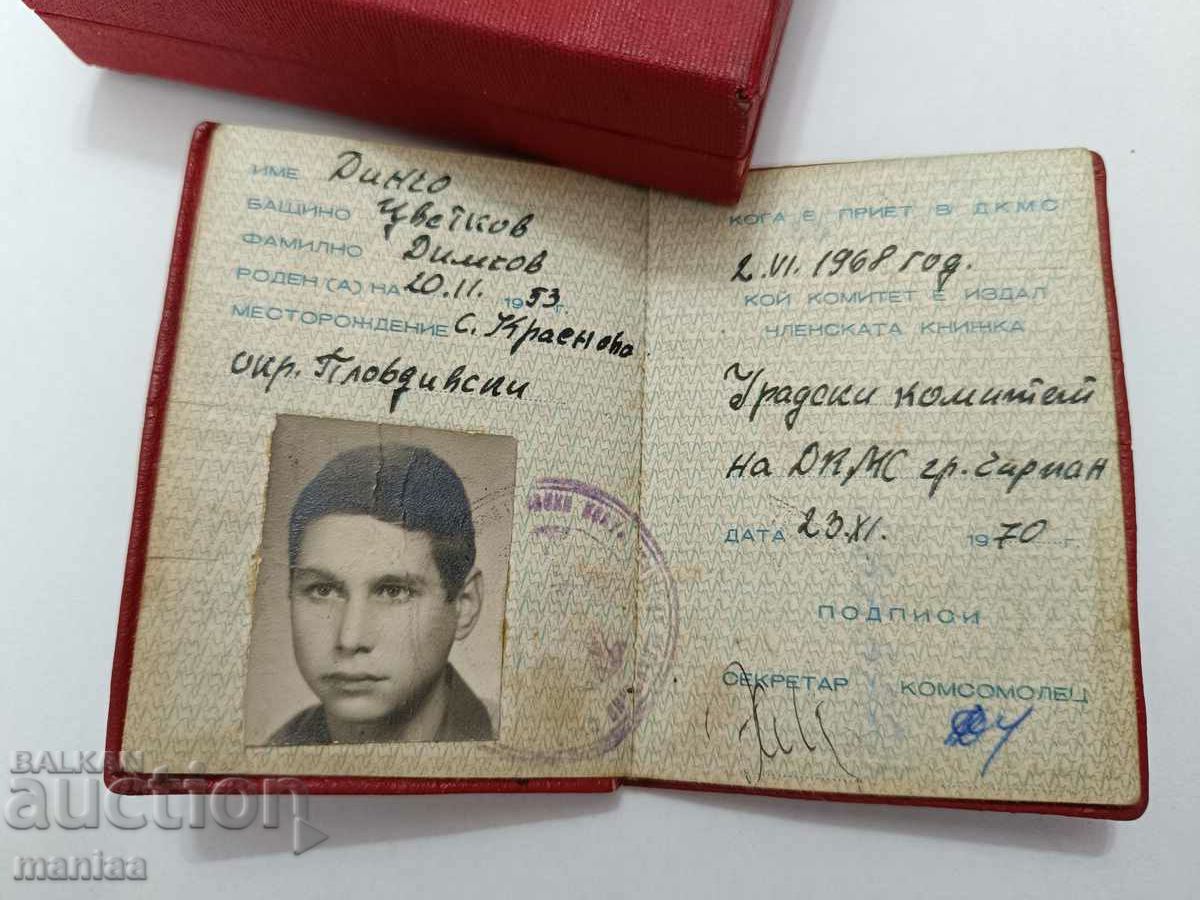 ИМЕ Динчо
БАЩИНО Цветков
ФАМИЛНО Димков
РОДЕН (А) НА 20.II. 1953 г.
МЕСТОРОЖДЕНИЕ с. Красново
окр. Пловдивски
КОГА Е ПРИЕТ В ДКМС
2.VI.1968 год.
КОЙ КОМИТЕТ Е ИЗДАЛ
ЧЛЕНСКАТА КНИЖКА
Градски комитет
на ДКМС гр. Чирпан
ДАТА 23.XI. 1970 г.
ПОДПИСИ
СЕКРЕТАР КОМСОМОЛЕЦ
BALKAN
auction
maniaa